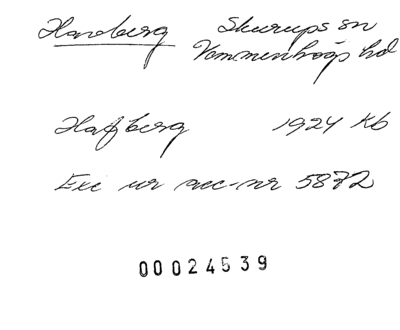 Havberg Skurups sn
Vemmenhögs hd
Hafberg 1924 Kb
Exc ur acc-nr 5872
00024539